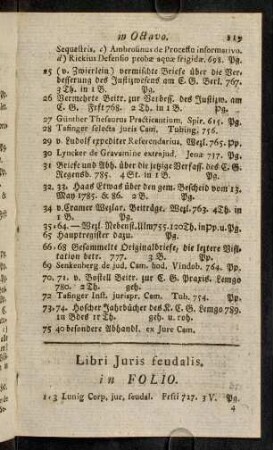 in Octavo. 119
Sequestris, c) Ambrosinus de Processu informativo.
d) Rickius Defensio probæ aquæ frigidæ. 698. Pg.
25 (v. Zwierlein) vermischte Briefe über die Ver-
besserung des Justizwesens am C. G. Berl. 767.
3 Th. in 1 B. Pg.
26 Vermehrte Beitr. zur Verbess. des Justizw. am
C. G. Frft 768. 2 Th. in 1 B. Pg.
27 Günther Thesaurus Practicantium, Spir. 615. Pg.
28 Tafinger selecta juris Cam. Tubing. 756.
29 v. Ludolf expediter Referendarius, Wezl. 765. Pp.
30 Lyncker de Gravamine extrajud. Jena 717. Pg.
31 Briefe und Abh. über die jetzige Verfass. des C. G.
Regensb. 785. 4 St. in 1 B. Pg.
32. 33. Haas Etwas über den gem. Bescheid vom 13.
May 1785. & 86. 2 B. Pg.
34 v. Cramer Wezlar. Beiträge. Wezl. 763. 4 Th. in
1 B. Pg.
35-64. — Wezl. Nebenst. Ulm 755. 120 Th. in Pp. u. Pg.
65 Hauptregister dazu. Pp.
66-68 Gesammelte Originalbriefe, die leztere Visi-
tation betr. 777. 3 B. Pp.
69 Senkenberg de jud. Cam. hod. Vindob. 764. Pp.
70. 71. v. Bostell Beitr. zur C. G. Praxis. Lemgo
780. 2 Th. geh.
72 Tafinger Inst. jurispr. Cam. Tub. 754. Pp.
73. 74. Hoscher Jahrbücher des K. C. G. Lemgo 789.
in Bdes 11 Th. geh. u. roh.
75 40 besondere Abhandl. ex Jure Cam.
Libri Juris feudalis,
in FOLIO.
1-3 Lunig Corp. jur. feudal. Frfti 727. 3 V. Pg.
4